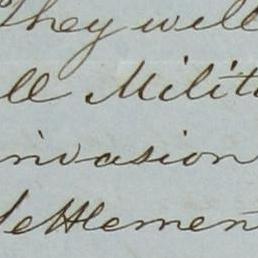 They will
all Milit
invasion
Settlemen